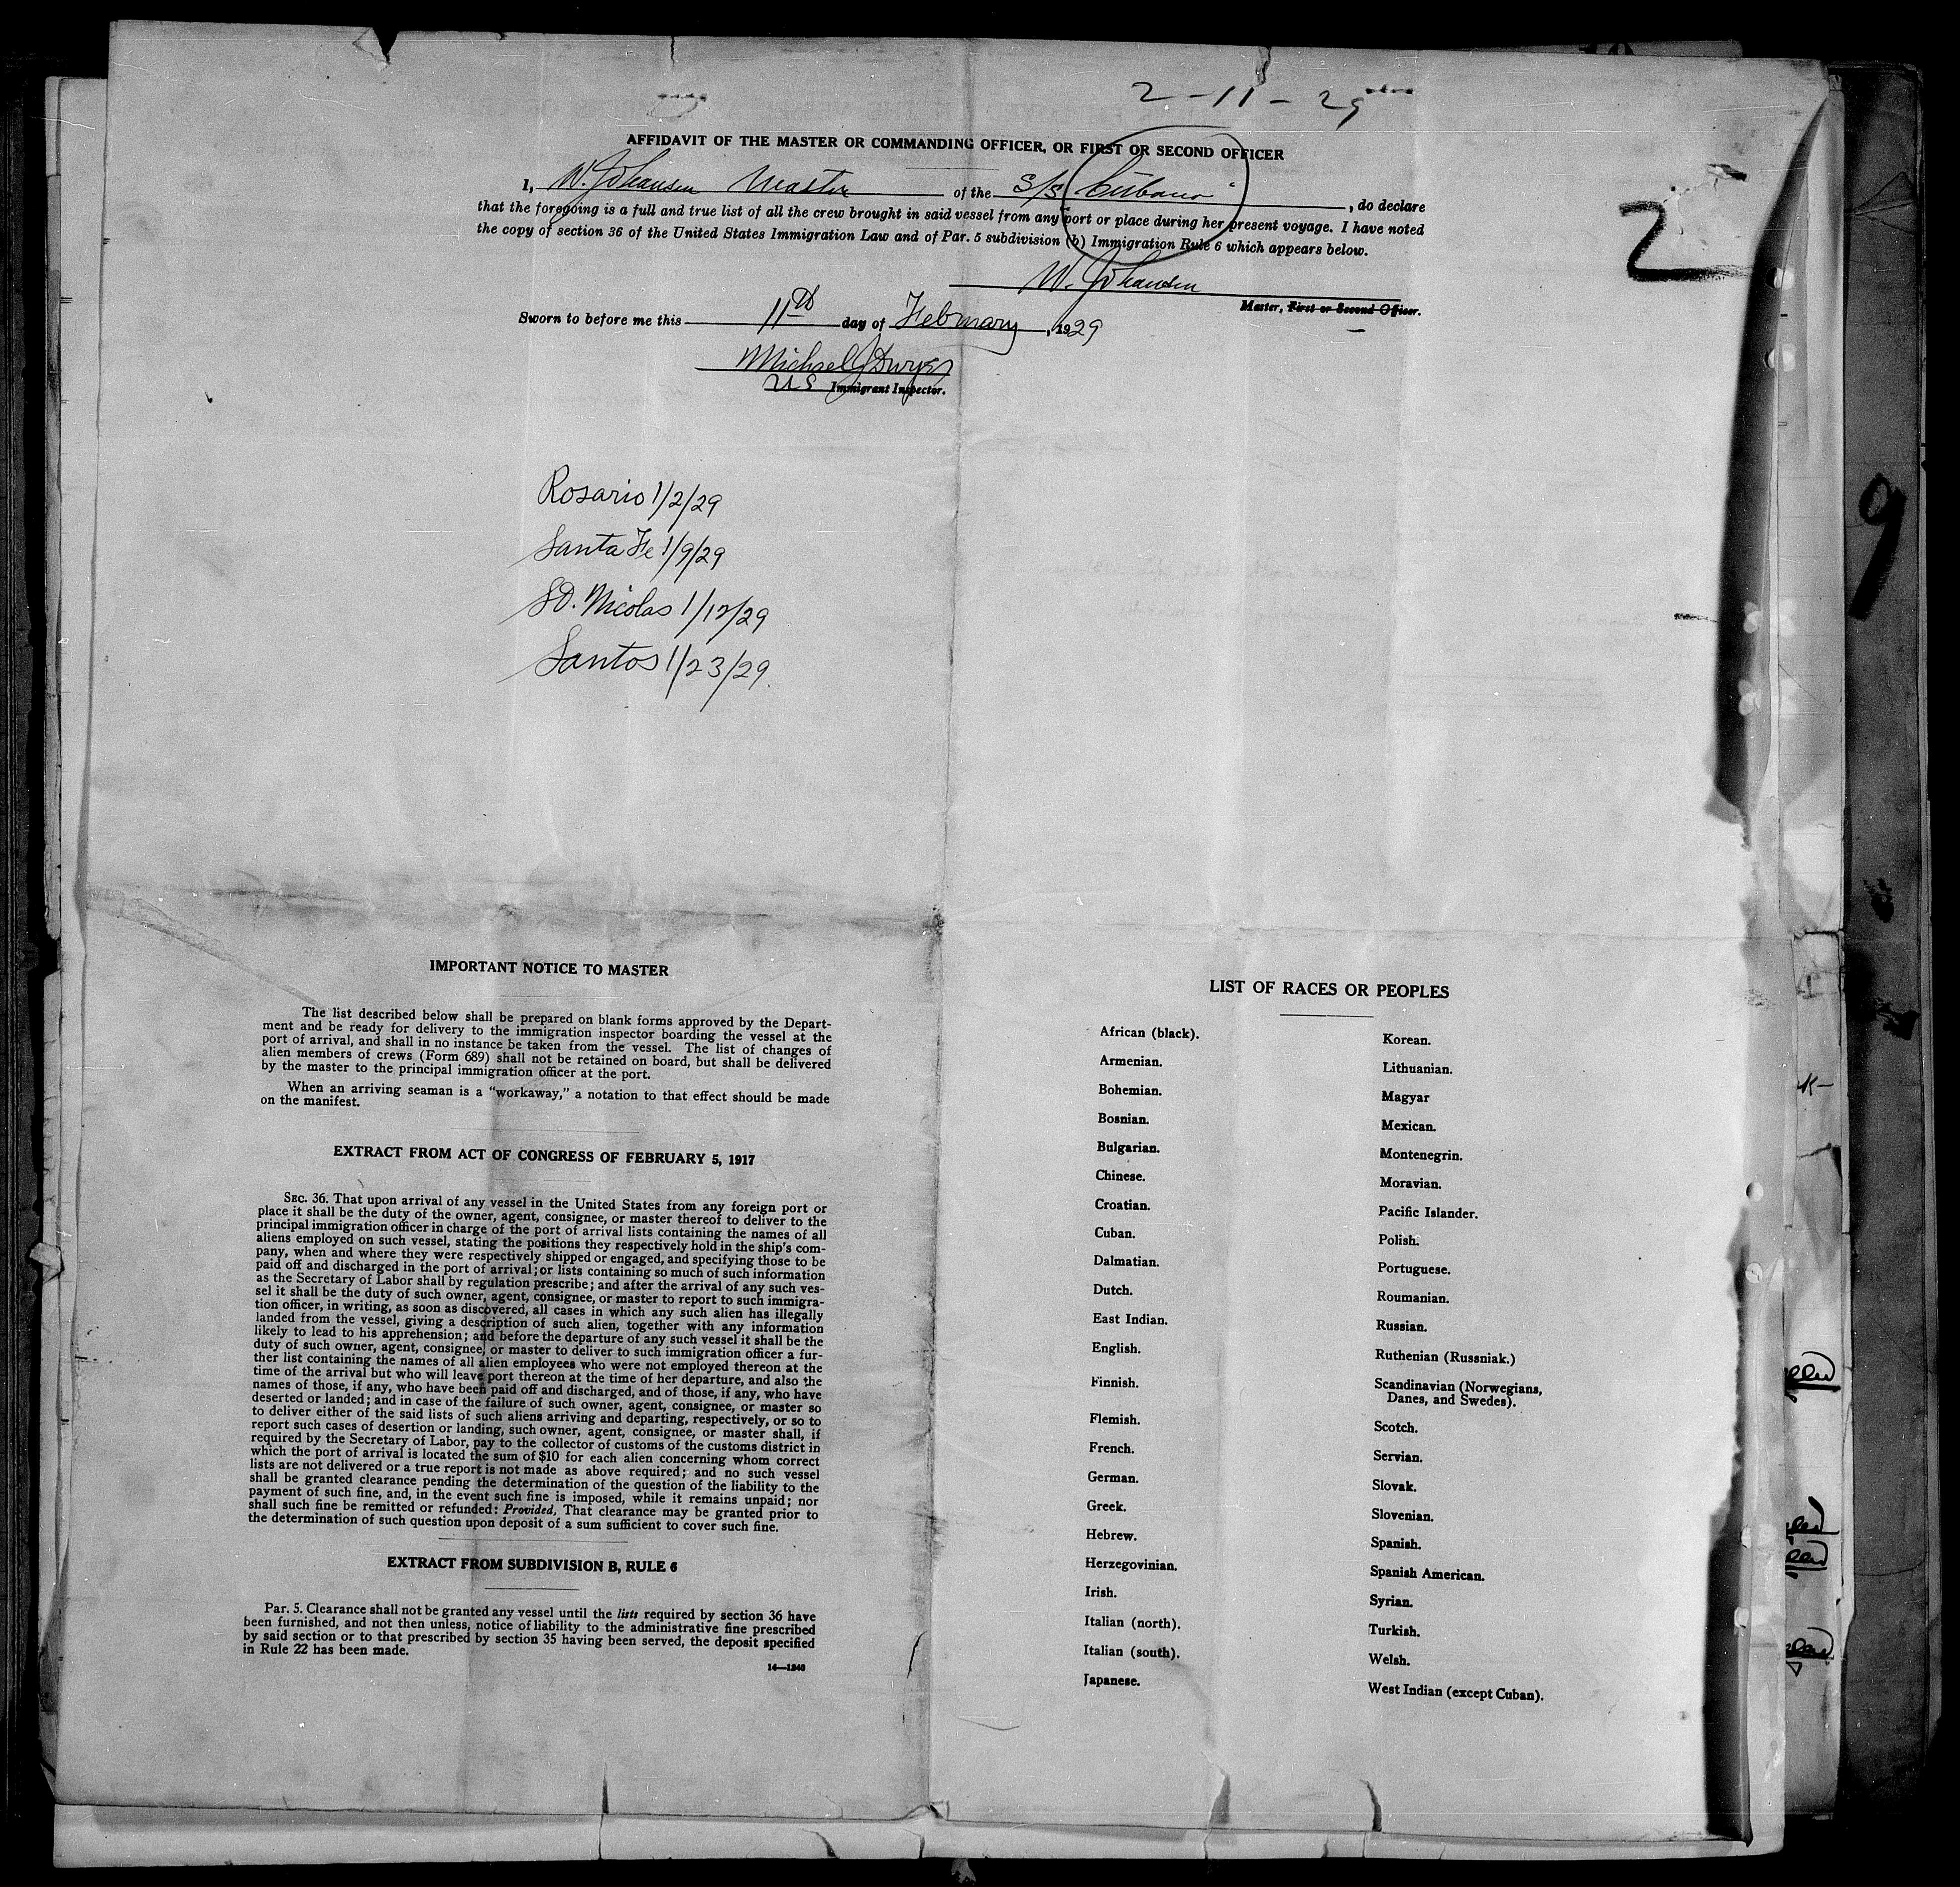 2-11-29
AFFIDAVIT OF THE MASTER OR COMMANDING OFFICER, OR FIRST OR SECOND OFFICER
I, W. Johansen Master of the S/S "Cubano", do declare
that the foregoing is a full and true list of all the crew brought in said vessel from any port or place during her present voyage. I have noted
the copy of section 36 of the United States Immigration Law and of Par. 5 subdivision (b) Immigration Rule 6 which appears below.
2
W. Johansen
Master, First or Second Officer.
Sworn to before me this 11th day of February, 1929
Michael J Dwyer
US Immigrant Inspector.
Rosario 1/2/29
Santa Fe 1/9/29
Sn. Nicolas 1/12/29
Santos 1/23/29
9
IMPORTANT NOTICE TO MASTER
The list described below shall be prepared on blank forms approved by the Depart-
ment and be ready for delivery to the immigration inspector boarding the vessel at the
port of arrival, and shall in no instance be taken from the vessel. The list of changes of
alien members of crews (Form 689) shall not be retained on board, but shall be delivered
by the master to the principal immigration officer at the port.
When an arriving seaman is a "workaway," a notation to that effect should be made
on the manifest.
EXTRACT FROM ACT OF CONGRESS OF FEBRUARY 5, 1917
SEC. 36. That upon arrival of any vessel in the United States from any foreign port or
place it shall be the duty of the owner, agent, consignee, or master thereof to deliver to the
principal immigration officer in charge of the port of arrival lists containing the names of all
aliens employed on such vessel, stating the positions they respectively hold in the ship's com-
pany, when and where they were respectively shipped or engaged, and specifying those to be
paid off and discharged in the port of arrival; or lists containing so much of such information
as the Secretary of Labor shall by regulation prescribe; and after the arrival of any such ves-
sel it shall be the duty of such owner, agent, consignee, or master to report to such immigra-
tion officer, in writing, as soon as discovered, all cases in which any such alien has illegally
landed from the vessel, giving a description of such alien, together with any information
likely to lead to his apprehension; and before the departure of any such vessel it shall be the
duty of such owner, agent, consignee, or master to deliver to such immigration officer a fur-
ther list containing the names of all alien employees who were not employed thereon at the
time of the arrival but who will leave port thereon at the time of her departure, and also the
names of those, if any, who have been paid off and discharged, and of those, if any, who have
deserted or landed; and in case of the failure of such owner, agent, consignee, or master so
to deliver either of the said lists of such aliens arriving and departing, respectively, or so to
report such cases of desertion or landing, such owner, agent, consignee, or master shall, if
required by the Secretary of Labor, pay to the collector of customs of the customs district in
which the port of arrival is located the sum of $10 for each alien concerning whom correct
lists are not delivered or a true report is not made as above required; and no such vessel
shall be granted clearance pending the determination of the question of the liability to the
payment of such fine, and, in the event such fine is imposed, while it remains unpaid; nor
shall such fine be remitted or refunded: Provided, That clearance may be granted prior to
the determination of such question upon deposit of a sum sufficient to cover such fine.
EXTRACT FROM SUBDIVISION B, RULE 6
Par. 5. Clearance shall not be granted any vessel until the lists required by section 36 have
been furnished, and not then unless, notice of liability to the administrative fine prescribed
by said section or to that prescribed by section 35 having been served, the deposit specified
in Rule 22 has been made.
14—1240
LIST OF RACES OR PEOPLES
African (black).
Armenian.
Bohemian.
Bosnian.
Bulgarian.
Chinese.
Croatian.
Cuban.
Dalmatian.
Dutch.
East Indian.
English.
Finnish.
Flemish.
French.
German.
Greek.
Hebrew.
Herzegovinian.
Irish.
Italian (north).
Italian (south).
Japanese.
Korean.
Lithuanian.
Magyar
Mexican.
Montenegrin.
Moravian.
Pacific Islander.
Polish.
Portuguese.
Roumanian.
Russian.
Ruthenian (Russniak.)
Scandinavian (Norwegians,
Danes, and Swedes).
Scotch.
Servian.
Slovak.
Slovenian.
Spanish.
Spanish American.
Syrian.
Turkish.
Welsh.
West Indian (except Cuban).